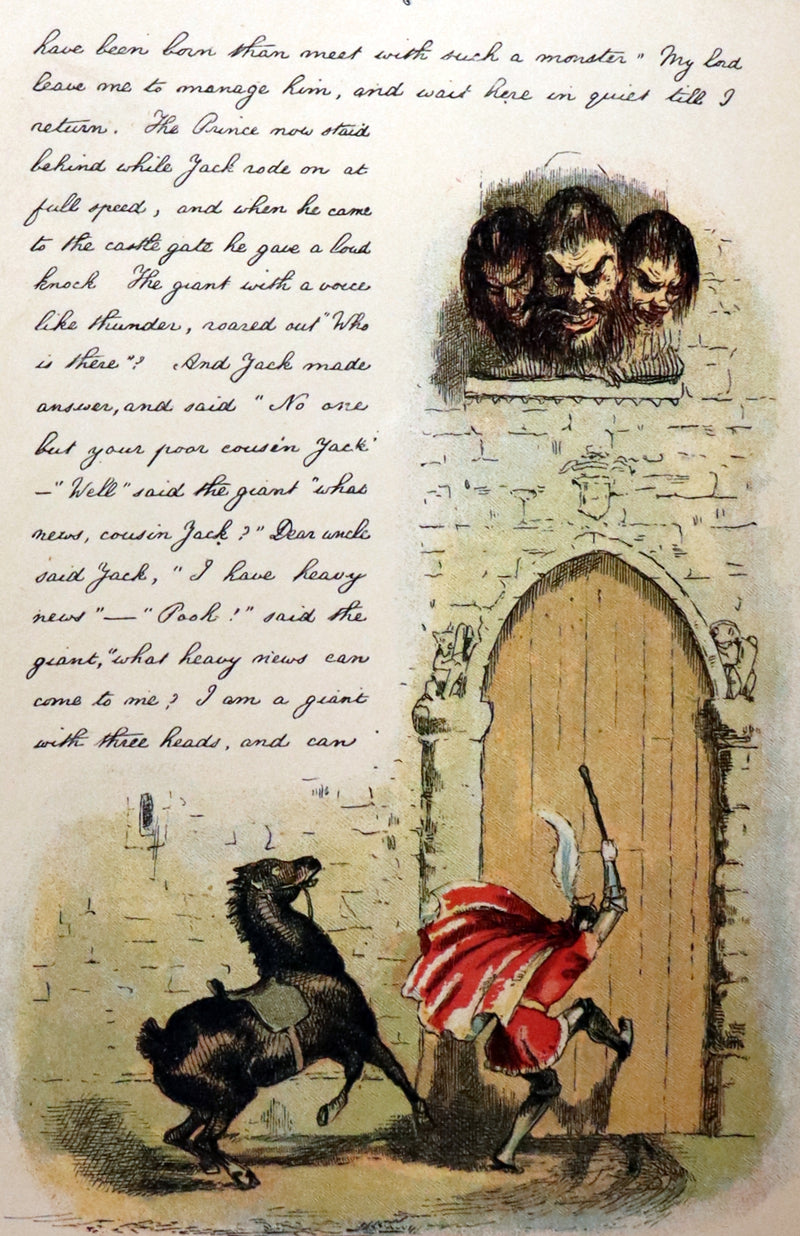 have been born than meet with such a monster" My lord
leave me to manage him, and wait here in quiet till I
return. The Prince now staid
behind while Jack rode on at
full speed, and when he came
to the castle gate he gave a loud
knock The giant with a voice
like thunder, roared out "Who
is there"? And Jack made
answer, and said "No one
but your poor cousin Jack"
—"Well" said the giant "what
news, cousin Jack?" Dear uncle
said Jack, "I have heavy
news"—"Pooh!" said the
giant, "what heavy news can
come to me? I am a giant
with three heads, and can